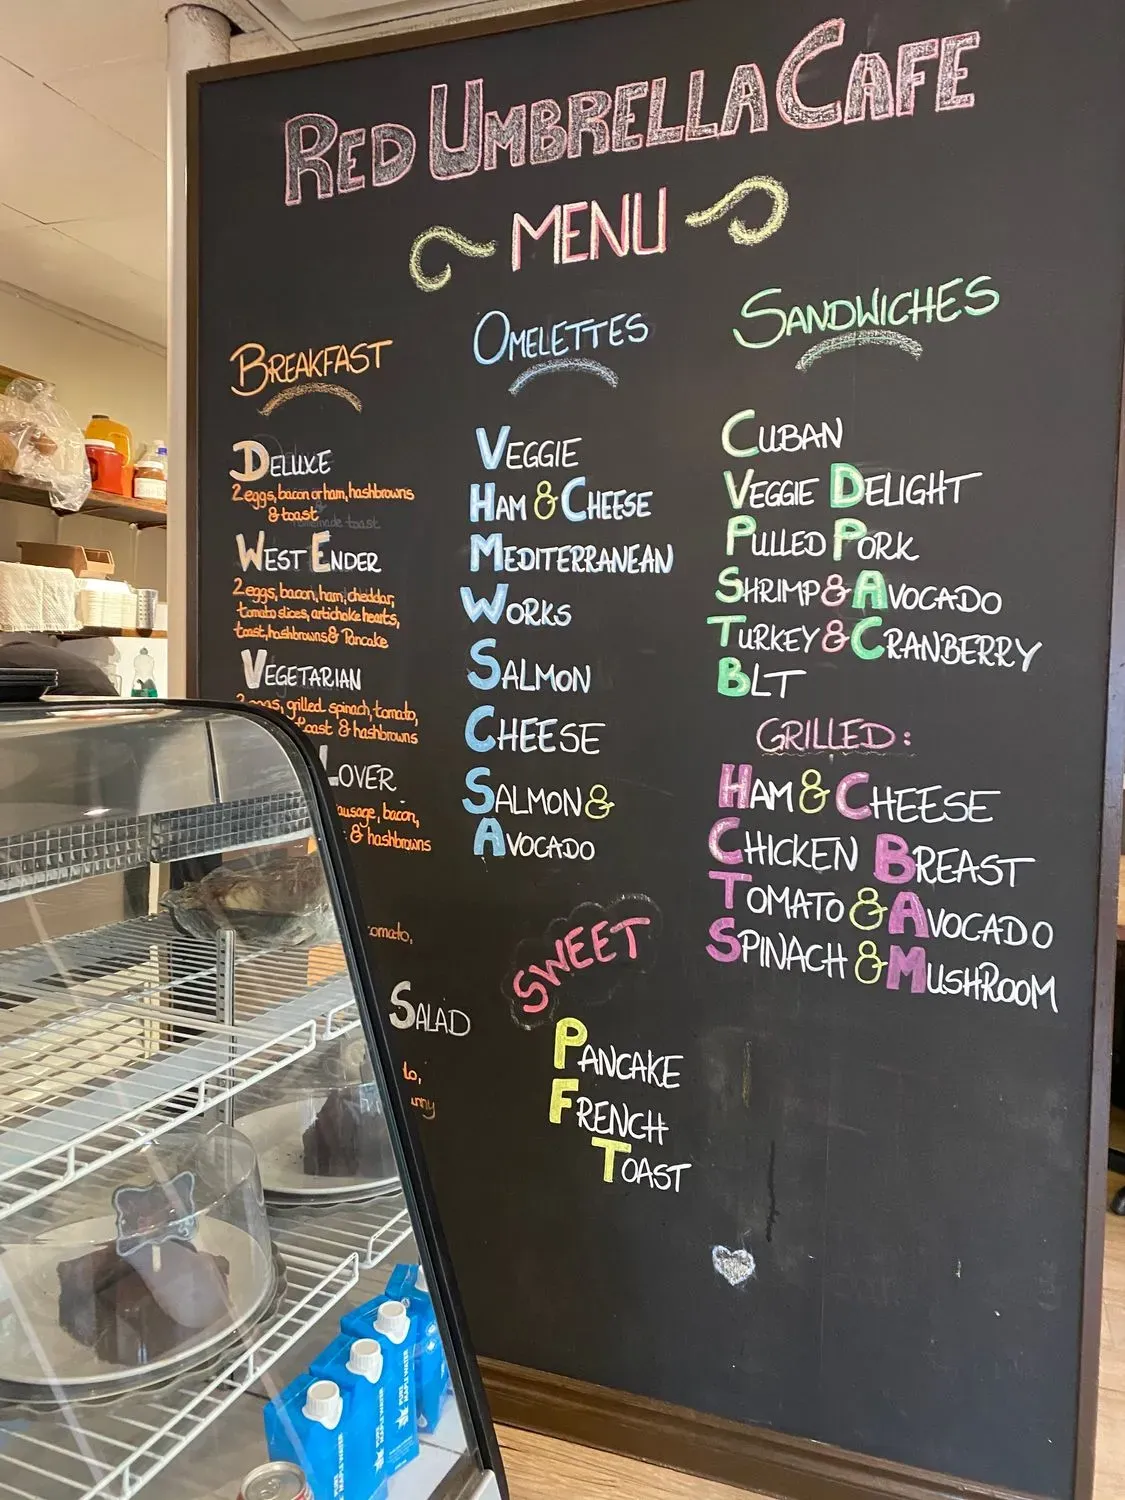 RED UMBRELLA CAFE
MENU
BREAKFAST
DELUXE
2 eggs, bacon or ham, hashbrowns
& toast
homemade toast
WEST ENDER
2 eggs, bacon, ham, cheddar,
tomato slices, artichoke hearts,
toast, hashbrowns & Pancake
VEGETARIAN
2 eggs, grilled spinach, tomato,
toast & hashbrowns
LOVER
sausage, bacon,
& hashbrowns
tomato,
SALAD
OMELETTES
VEGGIE
HAM & CHEESE
MEDITERRANEAN
WORKS
SALMON
CHEESE
SALMON &
AVOCADO
SWEET
PANCAKE
FRENCH
TOAST
SANDWICHES
CUBAN
VEGGIE DELIGHT
PULLED PORK
SHRIMP & AVOCADO
TURKEY & CRANBERRY
BLT
GRILLED:
HAM & CHEESE
CHICKEN BREAST
TOMATO & AVOCADO
SPINACH & MUSHROOM
PURE
MAPLE WATER